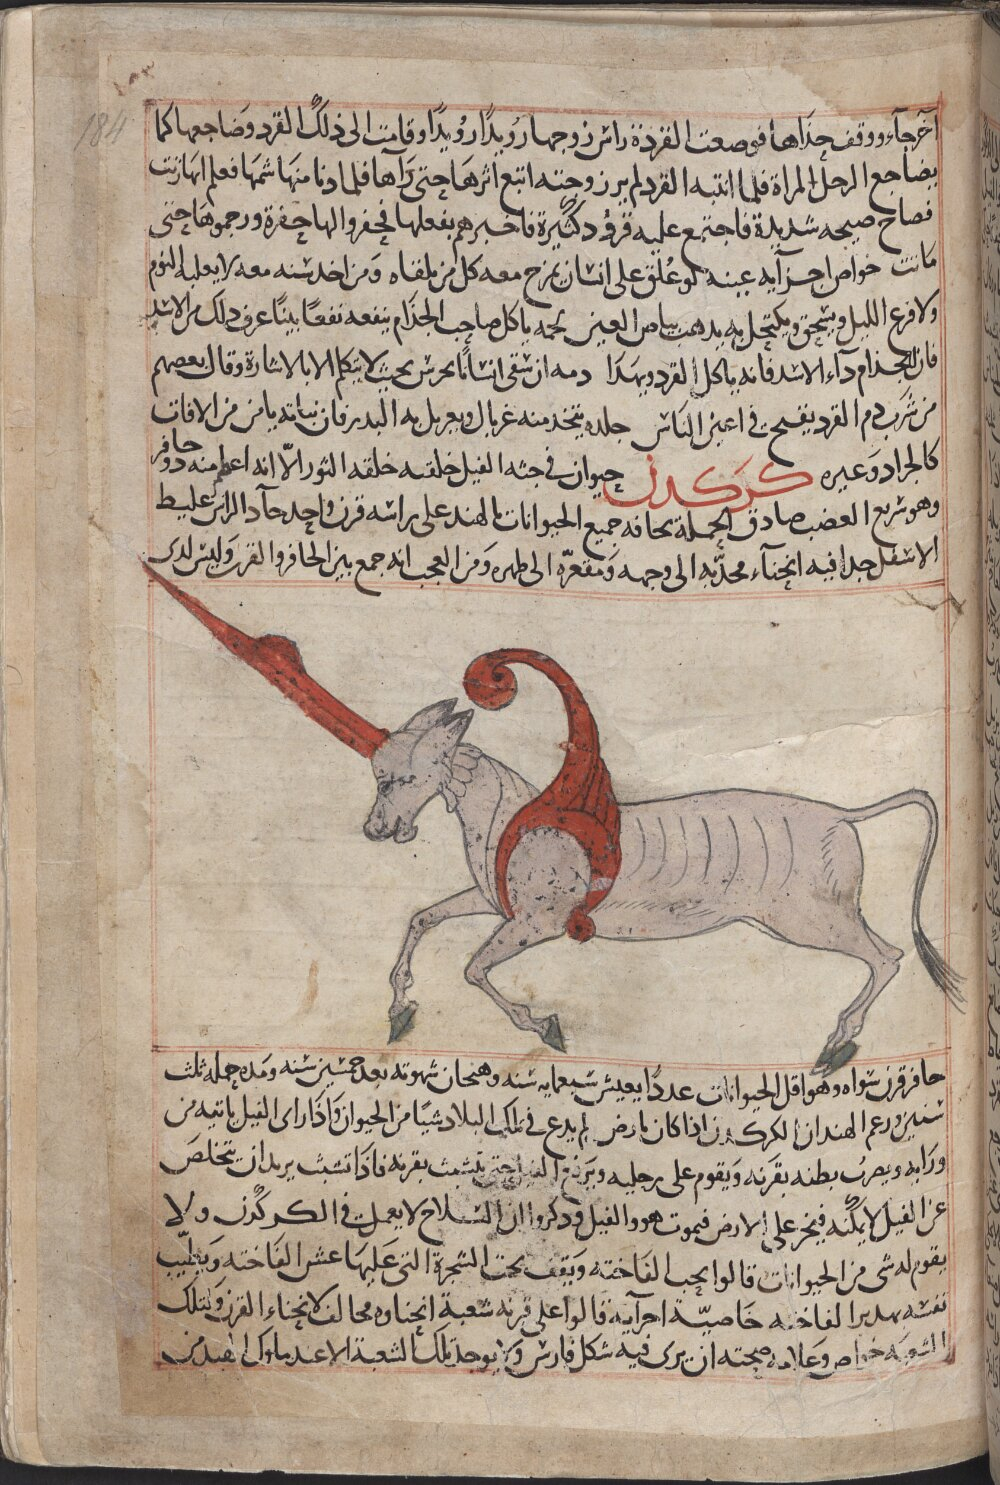 184
آخر جاء ووقف حذاها فوضعت القردة راس زوجها رويدًا رويدًا وقامت الى ذلك القرد وضاجعها كما
يضاجع الرجل المراة فلما انتبه القرد لم ير زوجته اتبع اثرها حتى رآها فلما دنا منها شمها فعلم انها زنت
فصاح صيحه شديدة فاجتمع عليه قرود كثيرة فاخبرهم بفعلها فحفروا لها حفرة ورجموها حتى
ماتت خواص اجزآيه عينه لو علق على انسان يمزح معه كل من يلقاه ومن اخذ سنه معه لا يغلبه النوم
ولا فزع الليل ويسحق ويكتحل به يذهب بياض العين لحمه ياكل صاحب الجذام ينفعه نفعًا بينًا عرف ذلك من الاسد
فان الجذام دآء الاسد فانه ياكل القرد وبهذا دمه ان سقى انسانًا يخرس بحيث لا يتكلم الا بالاشارة وقال بعضهم
من شرب دم القرد يقبح في اعين الناس جلده يتخذ منه غربال ويغربل به البذر فان نباته يامن من الافات
كالجراد وغيره كركدن حيوان في جثه الفيل خلقه خلقه الثور الّا انه اعظم منه ذو حافر
وهو سريع الغضب صادق الحملة يخافه جميع الحيوانات بالهند على راسه قرن واحد حآد الراس غليظ
الاسفل جدا فيه انحنآء محدّبه الى وجهه ومقعرّه الى ظهره ومن العجب انه جمع بين الحافر والقرن وليس لذى
حافر قرن سواه وهو اقل الحيوانات عددًا يعيش سبعمايه سنه وهيجان شهوته بعد خمسين سنه ومده حمله ثلث
سنين وزعم الهند ان الكركدن اذا كان بارض لم يدع في تلك البلاد شيًا من الحيوان واذا راى الفيل ياتيه من
ورايه ويضرب بطنه بقرنه ويقوم على رجليه ويرفع الفيل حتى يتشبث بقرنه فاذا تشبث يريد ان يتخلص
عن الفيل لا يمكنه فيخر على الارض فيموت هو والفيل وذكروا ان السلاح لا يعمل في الكركدن ولا
يقوم له شى من الحيوانات قالوا يحب الفاخته ويقف تحت الشجرة التى عليها عش الفاخته ويطيّب
نفسه بهدير الفاخته خاصيّة اجزآيه قالوا على قرنه شعبة انحناوه مخالف لانحناء القرن ولتلك
الشعبه خواص وعلامه صحته ان يرى فيه شكل فارس ولا يوجد تلك الشعبة الا عند ملوك الهند من